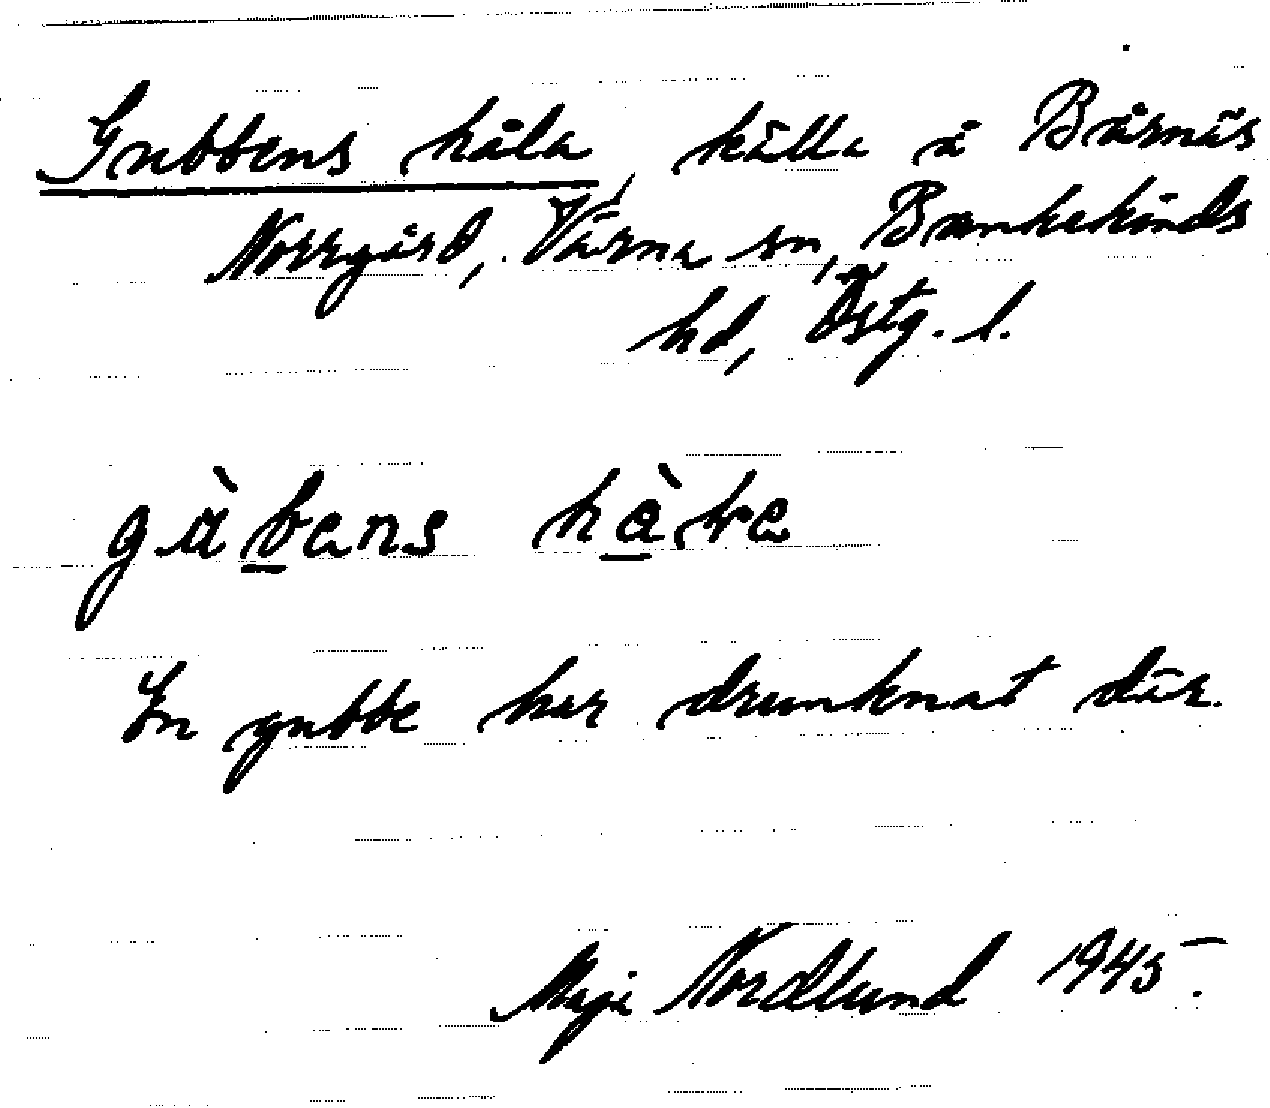 Gubbens håla, källa å Bårnäs
Norrgård, Värna sn, Bankekinds
hd, Östg. l.
gùbens hàle
En gubbe har drunknat där.
Maja Nordlund 1945.